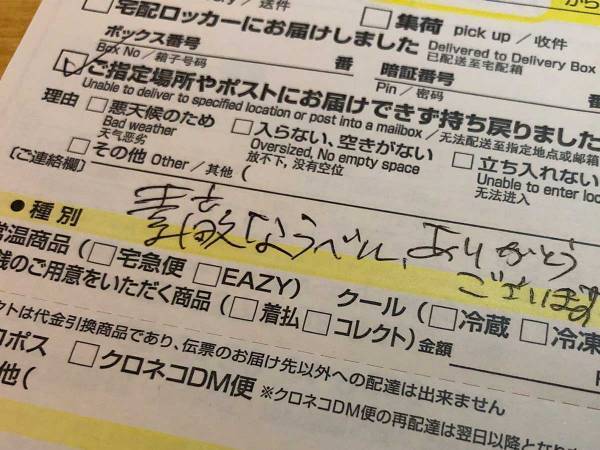 送件
から
□宅配ロッカーにお届けしました Delivered to Delivery Box
已配送至宅配箱
□集荷 pick up / 收件
ボックス番号 番
Box No / 箱子号码
暗証番号 番
Pin / 密码
☑ご指定場所やポストにお届けできず持ち戻りました
Unable to deliver to specified location or post into a mailbox / 无法配送至指定地点或邮箱
理由 □悪天候のため □入らない、空きがない □立ち入れない
Bad weather Oversized, No empty space Unable to enter loc
天气恶劣 放不下, 没有空位 无法进入
□その他 Other / 其他 (
〔ご連絡欄〕
素敵なラベル、ありがとう
ございます
●種別
常温商品 (□宅急便 □EAZY) クール (□冷蔵 □冷凍
銭のご用意をいただく商品 (□着払 □コレクト) 金額
クトは代金引換商品であり、伝票のお届け先以外への配達は出来ません
ロポス □クロネコDM便 ※クロネコDM便の再配達は翌日以降とな
他 (